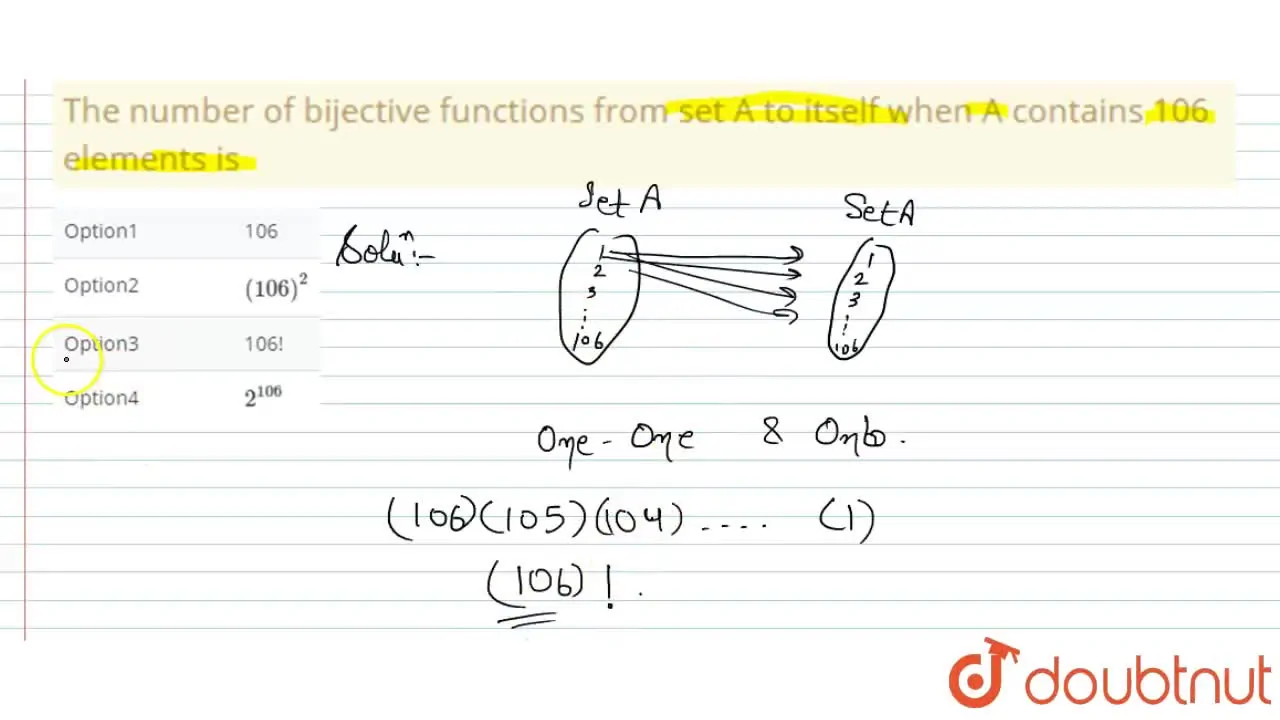 The number of bijective functions from set A to itself when A contains 106
elements is
Option1 106
Option2 (106)²
Option3 106!
Option4 2¹⁰⁶
Soluⁿ:-
Set A
Set A
1
2
3
⋮
106
1
2
3
⋮
106
One - One & Onto.
(106)(105)(104) .... (1)
(106)!.
doubtnut